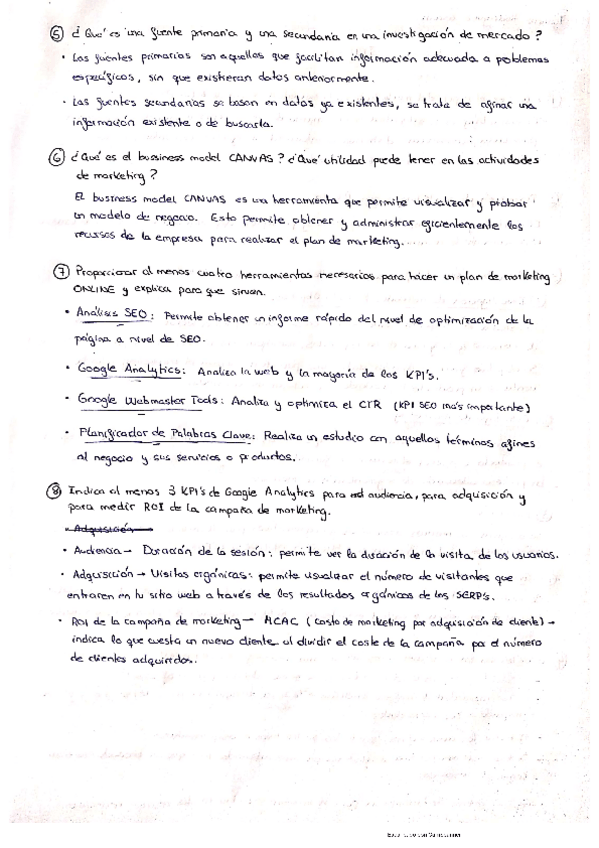 ⑤ ¿Qué es una fuente primaria y una secundaria en una investigación de mercado?
• Las fuentes primarias son aquellas que facilitan información adecuada a problemas
específicos, sin que existieran datos anteriormente.
• Las fuentes secundarias se basan en datos ya existentes, se trata de afinar una
información existente o de buscarla.
⑥ ¿Qué es el bussiness model CANVAS? ¿Qué utilidad puede tener en las actividades
de marketing?
El business model CANVAS es una herramienta que permite visualizar y probar
un modelo de negocio. Esto permite obtener y administrar eficientemente los
recursos de la empresa para realizar el plan de marketing.
⑦ Proporcionar al menos cuatro herramientas necesarias para hacer un plan de marketing
ONLINE y explica para que sirven.
• Análisis SEO: Permite obtener un informe rápido del nivel de optimización de la
página a nivel de SEO.
• Google Analytics: Analiza la web y la mayoría de los KPI's.
• Google Webmaster Tools: Analiza y optimiza el CTR (KPI SEO más importante)
• Planificador de Palabras Clave: Realiza un estudio con aquellos términos afines
al negocio y sus servicios o productos.
⑧ Indica al menos 3 KPI's de Google Analytics para audiencia, para adquisición y
para medir ROI de la campaña de marketing.
• Adquisición
• Audiencia → Duración de la sesión: permite ver la duración de la visita de los usuarios.
• Adquisición → Visitas orgánicas: permite visualizar el número de visitantes que
entraren en tu sitio web a través de los resultados orgánicos de los SERP's.
• ROI de la campaña de marketing → MCAC (costo de marketing por adquisición de cliente) →
indica lo que cuesta un nuevo cliente al dividir el coste de la campaña por el número
de clientes adquiridos.